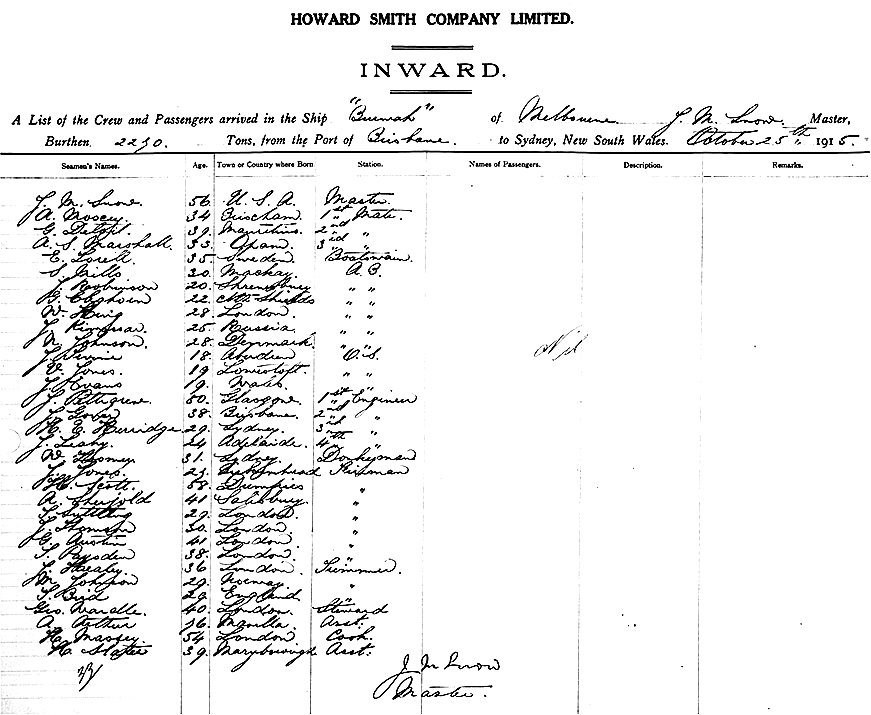 HOWARD SMITH COMPANY LIMITED.
INWARD.
A List of the Crew and Passengers arrived in the Ship "Burwah" of Melbourne J. M. Snow Master,
Burthen 2230. Tons, from the Port of Brisbane to Sydney, New South Wales. October 25th 1915.
Seamen's Names. Age. Town or Country where Born Station. Names of Passengers. Description. Remarks.
J. M. Snow 56 U. S. A Master
A. Mosey. 34 1st " Mate.
G. 39 Mauritius. 2nd "
A. S. Marshall. 33. 3rd "
E. Lovell. 35 Sweden Boatswain
S. Mills 30 Mackay. A. B.
J. Robinson 20. Shrewsbury " "
22 Nth Shields " "
W. King 28. London. " "
J. 25 Russia " "
N. Johnson. 28. Denmark. " "
J. 18 Aberdeen O. S.
V. Jones. 19 Lowestoft. " "
J. Evans 19. Wales. " "
Nil
J. Pettigrew. 50. Glasgow. 1st Engineer
J. 38. Brisbane. 2nd "
H. E. Herridge 29. Sydney. 3rd "
J. Leahy. 24 Adelaide. 4th "
W. 31. Sydney. Donkeyman
J. Jones. 23. Birkenhead Fireman
Scott. 58. Dumfries "
A. 41 Salisbury "
29. London "
J. Thomson 30. London. "
G. Austin 41 London. "
S. 38. London. "
J. Healey 36 London. Trimmer.
M. Johnson 29. Norway "
S. Bird 29 England "
Geo. Wardle. 40. London. Steward
A. Arthur 36 Manilla Asst.
H. Massey. 54 London Cook.
H. Slater 39. Maryborough Asst.
33
J M Snow
Master.